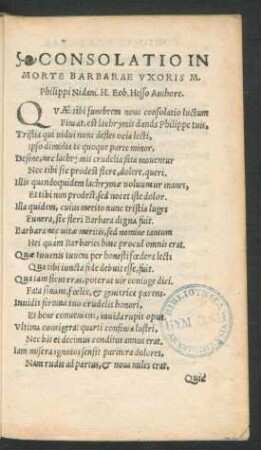 CONSOLATIO IN
MORTE BARBARAE VXORIS M.
Philippi Nidani. H. Eob. Hesso Authore.
QVAE tibi funebrem nous consolatio luctum
Finiat: est lachrymis danda Philippe tuis,
Tristia qui uidui nunc defles ocia lecti,
Ipso dimidia te quoque parte minor.
Desine, nec lachrymis crudelia fata mouentur
Nec tibi sic prodest flere, dolere, queri.
Illis quandoquidem lachrymae uoluuntur inanes,
Et tibi non prodest, sed nocet iste dolor.
Illa quidem, cuius merito nunc tristia luges
Funera, sic fleri Barbara digna fuit.
Barbara nec uitae meritis, sed nomine tantum
Hei quam Barbaries huic procul omnis erat.
Quae iuueni iuuem per honesti foedera lecti
Qua tibi iuncta fide debuit esse, fuit.
Qua iam sicut erat, poterat uir coniuge dici.
Fata sinant, foelix, & genitrice parens.
Inuidit fortuna tuo crudelis honori,
Et bene conueniens, inuida rupit opus.
Vltima contigerat quarti confinia lustri,
Nec bis ei decimus conditus annus erat.
Iam misera ignotos sensit paritura dolores,
Nam rudis ad partus, & noua miles erat.
Quid
BIBLIOTHECA
GYM